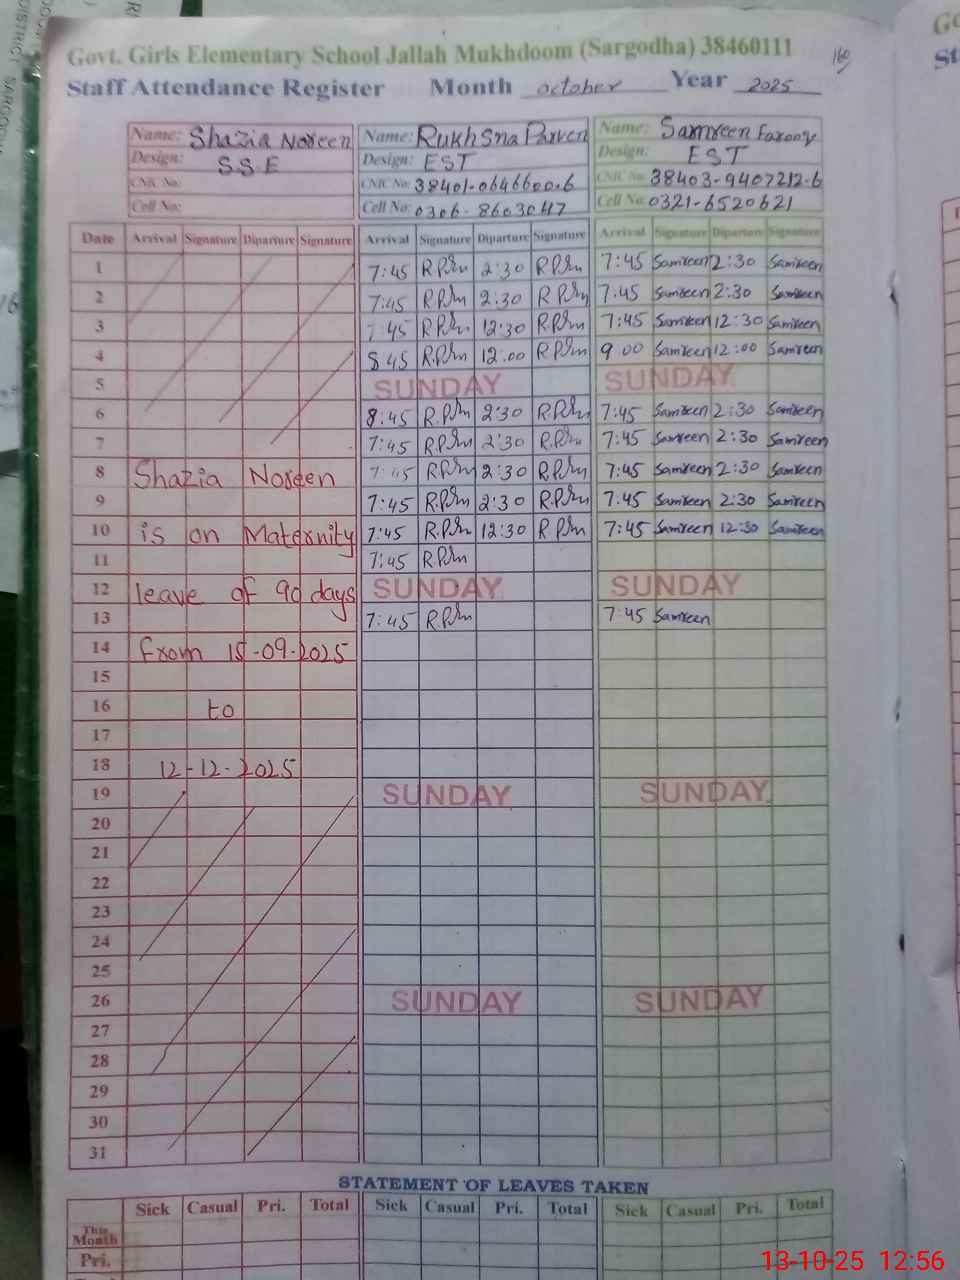 Govt. Girls Elementary School Jallah Mukhdoom (Sargodha) 38460111
160
Staff Attendance Register Month october Year 2025
Name: Shazia Noreen Name: Rukhsna Parven Name: Samreen Farooq
Design: S.S.E Design: EST Design: EST
CNIC No: CNIC No: 38401-0646600-6 CNIC No: 38403-9407212-6
Cell No: Cell No: 0306-8603047 Cell No: 0321-6520621
Date Arrival Signature Diparture Signature Arrival Signature Diparture Signature Arrival Signature Diparture Signature
1 7:45 2:30 7:45 Samreen 2:30 Samreen
2 7:45 2:30 7:45 Samreen 2:30 Samreen
3 7:45 12:30 7:45 Samreen 12:30 Samreen
4 8 45 12:00 9 00 Samreen 12:00 Samreen
5 SUNDAY SUNDAY
6 8:45 2:30 7:45 Samreen 2:30 Samreen
7 7:45 2:30 7:45 Samreen 2:30 Samreen
8 Shazia Noreen 7:45 2:30 7:45 Samreen 2:30 Samreen
9 7:45 2:30 7:45 Samreen 2:30 Samreen
10 is on Maternity 7:45 12:30 7:45 Samreen 12:30 Samreen
11 7:45
12 leave of 90 days SUNDAY SUNDAY
13 7:45 7:45 Samreen
14 from 15-09-2025
15
16 to
17
18 12-12-2025
19 SUNDAY SUNDAY
20
21
22
23
24
25
26 SUNDAY SUNDAY
27
28
29
30
31
STATEMENT OF LEAVES TAKEN
Sick Casual Pri. Total Sick Casual Pri. Total Sick Casual Pri. Total
This Month
Pri.
13-10-25 12:56